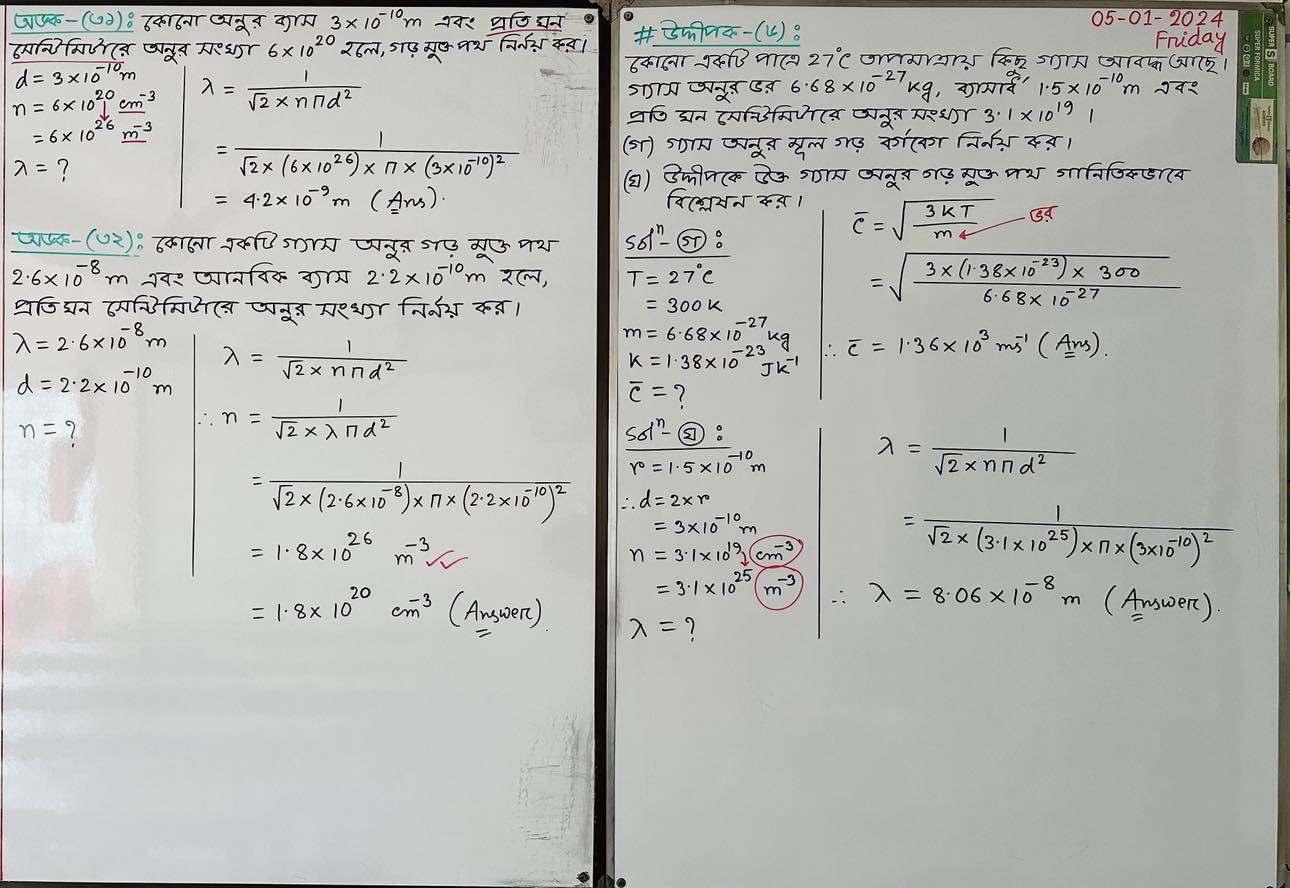 অংক-(৩১): কোনো অনুর ব্যাস 3×10⁻¹⁰m এবং প্রতি ঘন
সেন্টিমিটারে অনুর সংখ্যা 6×10²⁰ হলে, গড় মুক্ত পথ নির্নয় কর।
d = 3×10⁻¹⁰m
n = 6×10²⁰ cm⁻³
= 6×10²⁶ m⁻³
λ = ?
λ = 1/(√2 × nπd²)
= 1/(√2×(6×10²⁶)×π×(3×10⁻¹⁰)²)
= 4.2×10⁻⁹ m (Ans).
অংক-(৩২): কোনো একটি গ্যাস অনুর গড় মুক্ত পথ
2.6×10⁻⁸ m এবং আনবিক ব্যাস 2.2×10⁻¹⁰ m হলে,
প্রতি ঘন সেন্টিমিটারে অনুর সংখ্যা নির্নয় কর।
λ = 2.6×10⁻⁸ m
d = 2.2×10⁻¹⁰ m
n = ?
λ = 1/(√2 × nπd²)
∴ n = 1/(√2 × λπd²)
= 1/(√2×(2.6×10⁻⁸)×π×(2.2×10⁻¹⁰)²)
= 1.8×10²⁶ m⁻³
= 1.8×10²⁰ cm⁻³ (Answer).
05-01-2024
Friday
# উদ্দীপক-(৬):
কোনো একটি পাত্রে 27°C তাপমাত্রায় কিছু গ্যাস আবদ্ধ আছে।
গ্যাস অনুর ভর 6.68×10⁻²⁷ kg, ব্যাসার্ধ 1.5×10⁻¹⁰ m এবং
প্রতি ঘন সেন্টিমিটারে অনুর সংখ্যা 3.1×10¹⁹।
(গ) গ্যাস অনুর মূল গড় বর্গবেগ নির্নয় কর।
(ঘ) উদ্দীপকে উক্ত গ্যাস অনুর গড় মুক্ত পথ গানিতিকভাবে
বিশ্লেষন কর।
Solⁿ-গ:
T = 27°C
= 300K
m = 6.68×10⁻²⁷ kg
K = 1.38×10⁻²³ JK⁻¹
c̄ = ?
c̄ = √(3KT/m) ভর
= √(3×(1.38×10⁻²³)×300/6.68×10⁻²⁷)
∴ c̄ = 1.36×10³ ms⁻¹ (Ans).
Solⁿ-ঘ:
r = 1.5×10⁻¹⁰ m
∴ d = 2×r
= 3×10⁻¹⁰ m
n = 3.1×10¹⁹ cm⁻³
= 3.1×10²⁵ m⁻³
λ = ?
λ = 1/(√2 × nπd²)
= 1/(√2×(3.1×10²⁵)×π×(3×10⁻¹⁰)²)
∴ λ = 8.06×10⁻⁸ m (Answer).
SUPER S BOARD
SUPER FORMICA